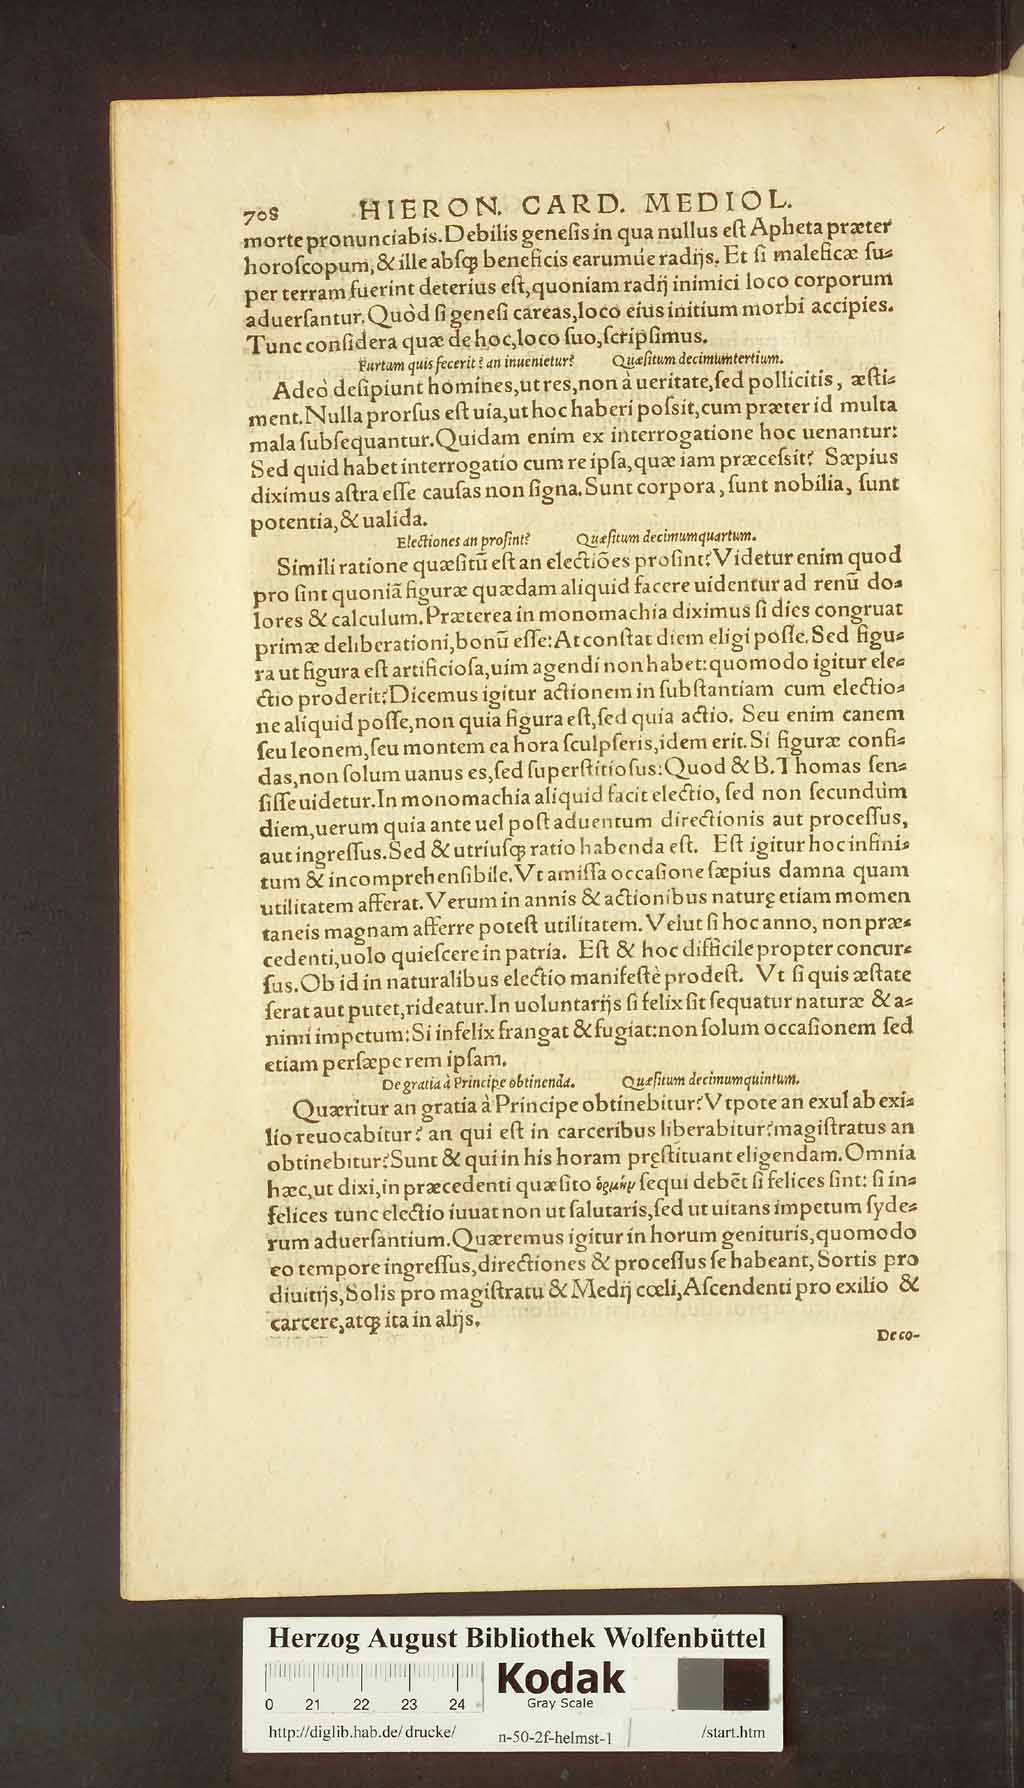 708 HIERON. CARD. MEDIOL.
morte pronunciabis. Debilis genesis in qua nullus eſt Apheta præter
horoſcopum, & ille abſqꝫ beneficis earumúe radijs. Et ſi maleficæ ſu-
per terram fuerint deterius eſt, quoniam radij inimici loco corporum
aduerſantur. Quòd ſi geneſi careas, loco eius initium morbi accipies.
Tunc conſidera quæ de hoc, loco ſuo, ſcripſimus.
Furtum quis fecerit? an inuenietur? Quæſitum decimumtertium.
Adeò deſipiunt homines, ut res, non à ueritate, ſed pollicitis, æſti-
ment. Nulla prorſus eſt uia, ut hoc haberi poſsit, cum præter id multa
mala ſubſequantur. Quidam enim ex interrogatione hoc uenantur:
Sed quid habet interrogatio cum re ipſa, quæ iam præceſsit? Sæpius
diximus aſtra eſſe cauſas non ſigna. Sunt corpora, ſunt nobilia, ſunt
potentia, & ualida.
Electiones an proſint? Quæſitum decimumquartum.
Simili ratione quæſitũ eſt an electiões proſint? Videtur enim quod
pro ſint quoniã figuræ quædam aliquid facere uidentur ad renũ do-
lores & calculum. Præterea in monomachia diximus ſi dies congruat
primæ deliberationi, bonũ eſſe: At conſtat diem eligi poſſe. Sed figu-
ra ut figura eſt artificioſa, uim agendi non habet: quomodo igitur ele-
ctio proderit? Dicemus igitur actionem in ſubſtantiam cum electio-
ne aliquid poſſe, non quia figura eſt, ſed quia actio. Seu enim canem
ſeu leonem, ſeu montem ea hora ſculpſeris, idem erit. Si figuræ confi-
das, non ſolum uanus es, ſed ſuperſtitioſus: Quod & B. Thomas ſen-
ſiſſe uidetur. In monomachia aliquid facit electio, ſed non ſecundùm
diem, uerum quia ante uel poſt aduentum directionis aut proceſſus,
aut ingreſſus. Sed & utriuſqꝫ ratio habenda eſt. Eſt igitur hoc infini-
tum & incomprehenſibile. Vt amiſſa occaſione ſæpius damna quam
utilitatem afferat. Verum in annis & actionibus naturę etiam momen
taneis magnam afferre poteſt utilitatem. Velut ſi hoc anno, non præ-
cedenti, uolo quieſcere in patria. Eſt & hoc difficile propter concur-
ſus. Ob id in naturalibus electio manifeſtè prodeſt. Vt ſi quis æſtate
ſerat aut putet, rideatur. In uoluntarijs ſi felix ſit ſequatur naturæ & a-
nimi impetum: Si infelix frangat & fugiat: non ſolum occaſionem ſed
etiam perſæpe rem ipſam.
De gratia à Principe obtinenda. Quæſitum decimumquintum.
Quæritur an gratia à Principe obtinebitur? Vtpote an exul ab exi-
lio reuocabitur? an qui eſt in carceribus liberabitur? magiſtratus an
obtinebitur? Sunt & qui in his horam pręſtituant eligendam. Omnia
hæc, ut dixi, in præcedenti quæſito ὁρμὴν ſequi debẽt ſi felices ſint: ſi in-
felices tunc electio iuuat non ut ſalutaris, ſed ut uitans impetum ſyde-
rum aduerſantium. Quæremus igitur in horum genituris, quomodo
eo tempore ingreſſus, directiones & proceſſus ſe habeant, Sortis pro
diuitijs, Solis pro magiſtratu & Medij cœli, Aſcendenti pro exilio &
carcere, atqꝫ ita in alijs.
De co-
Herzog August Bibliothek Wolfenbüttel
Kodak
Gray Scale
0 21 22 23 24
http://diglib.hab.de/drucke/ n-50-2f-helmst-1 /start.htm